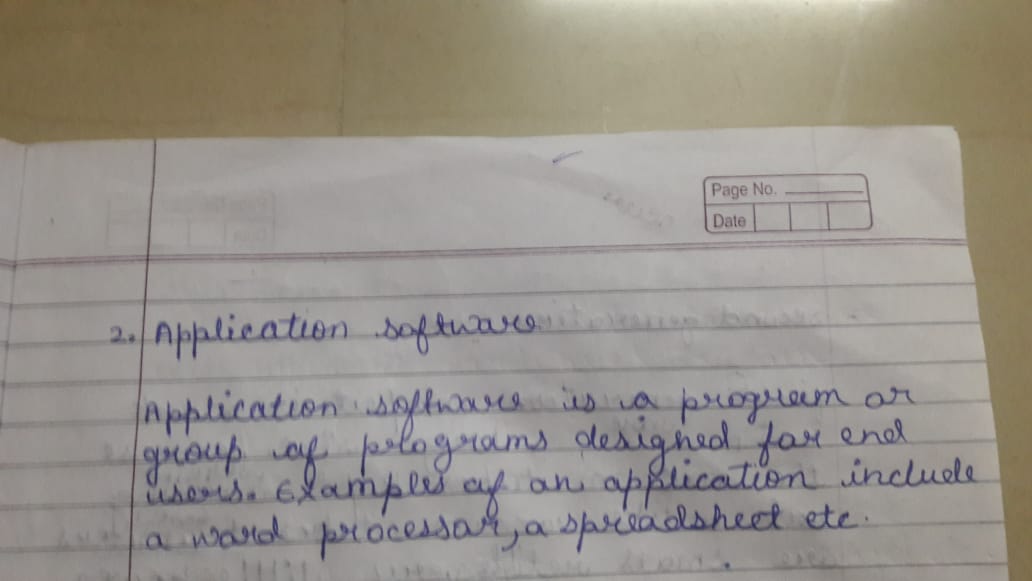 Page No.
Date
2. Application software
Application software is a program or
group of programs designed for end
users. Examples of an application include
a word processor, a spreadsheet etc.